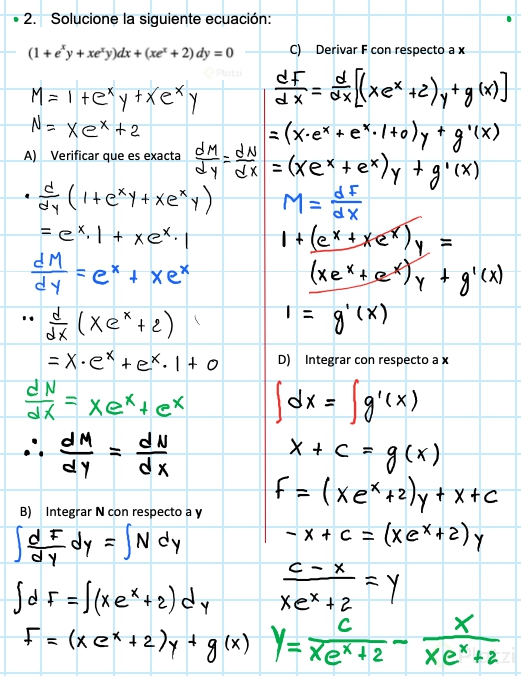 • 2. Solucione la siguiente ecuación:
(1 + eˣy + xeˣy)dx + (xeˣ + 2) dy = 0
M = 1 + eˣy + xeˣy
N = xeˣ + 2
A) Verificar que es exacta dM/dy = dN/dx
• d/dy (1 + eˣy + xeˣy)
= eˣ.1 + xeˣ.1
dM/dy = eˣ + xeˣ
•• d/dx (xeˣ + 2)
= x·eˣ + eˣ.1 + 0
dN/dx = xeˣ + eˣ
∴ dM/dy = dN/dx
B) Integrar N con respecto a y
∫ dF/dy dy = ∫ N dy
∫ dF = ∫(xeˣ + 2) dy
F = (xeˣ + 2)y + g(x)
C) Derivar F con respecto a x
dF/dx = d/dx [(xeˣ + 2)y + g(x)]
= (x·eˣ + eˣ.1 + 0)y + g'(x)
= (xeˣ + eˣ)y + g'(x)
M = dF/dx
1 + (eˣ + xeˣ)y =
(xeˣ + eˣ)y + g'(x)
1 = g'(x)
D) Integrar con respecto a x
∫ dx = ∫ g'(x)
x + c = g(x)
F = (xeˣ + 2)y + x + c
- x + c = (xeˣ + 2)y
c - x / xeˣ + 2 = y
y = c / xeˣ + 2 - x / xeˣ + 2